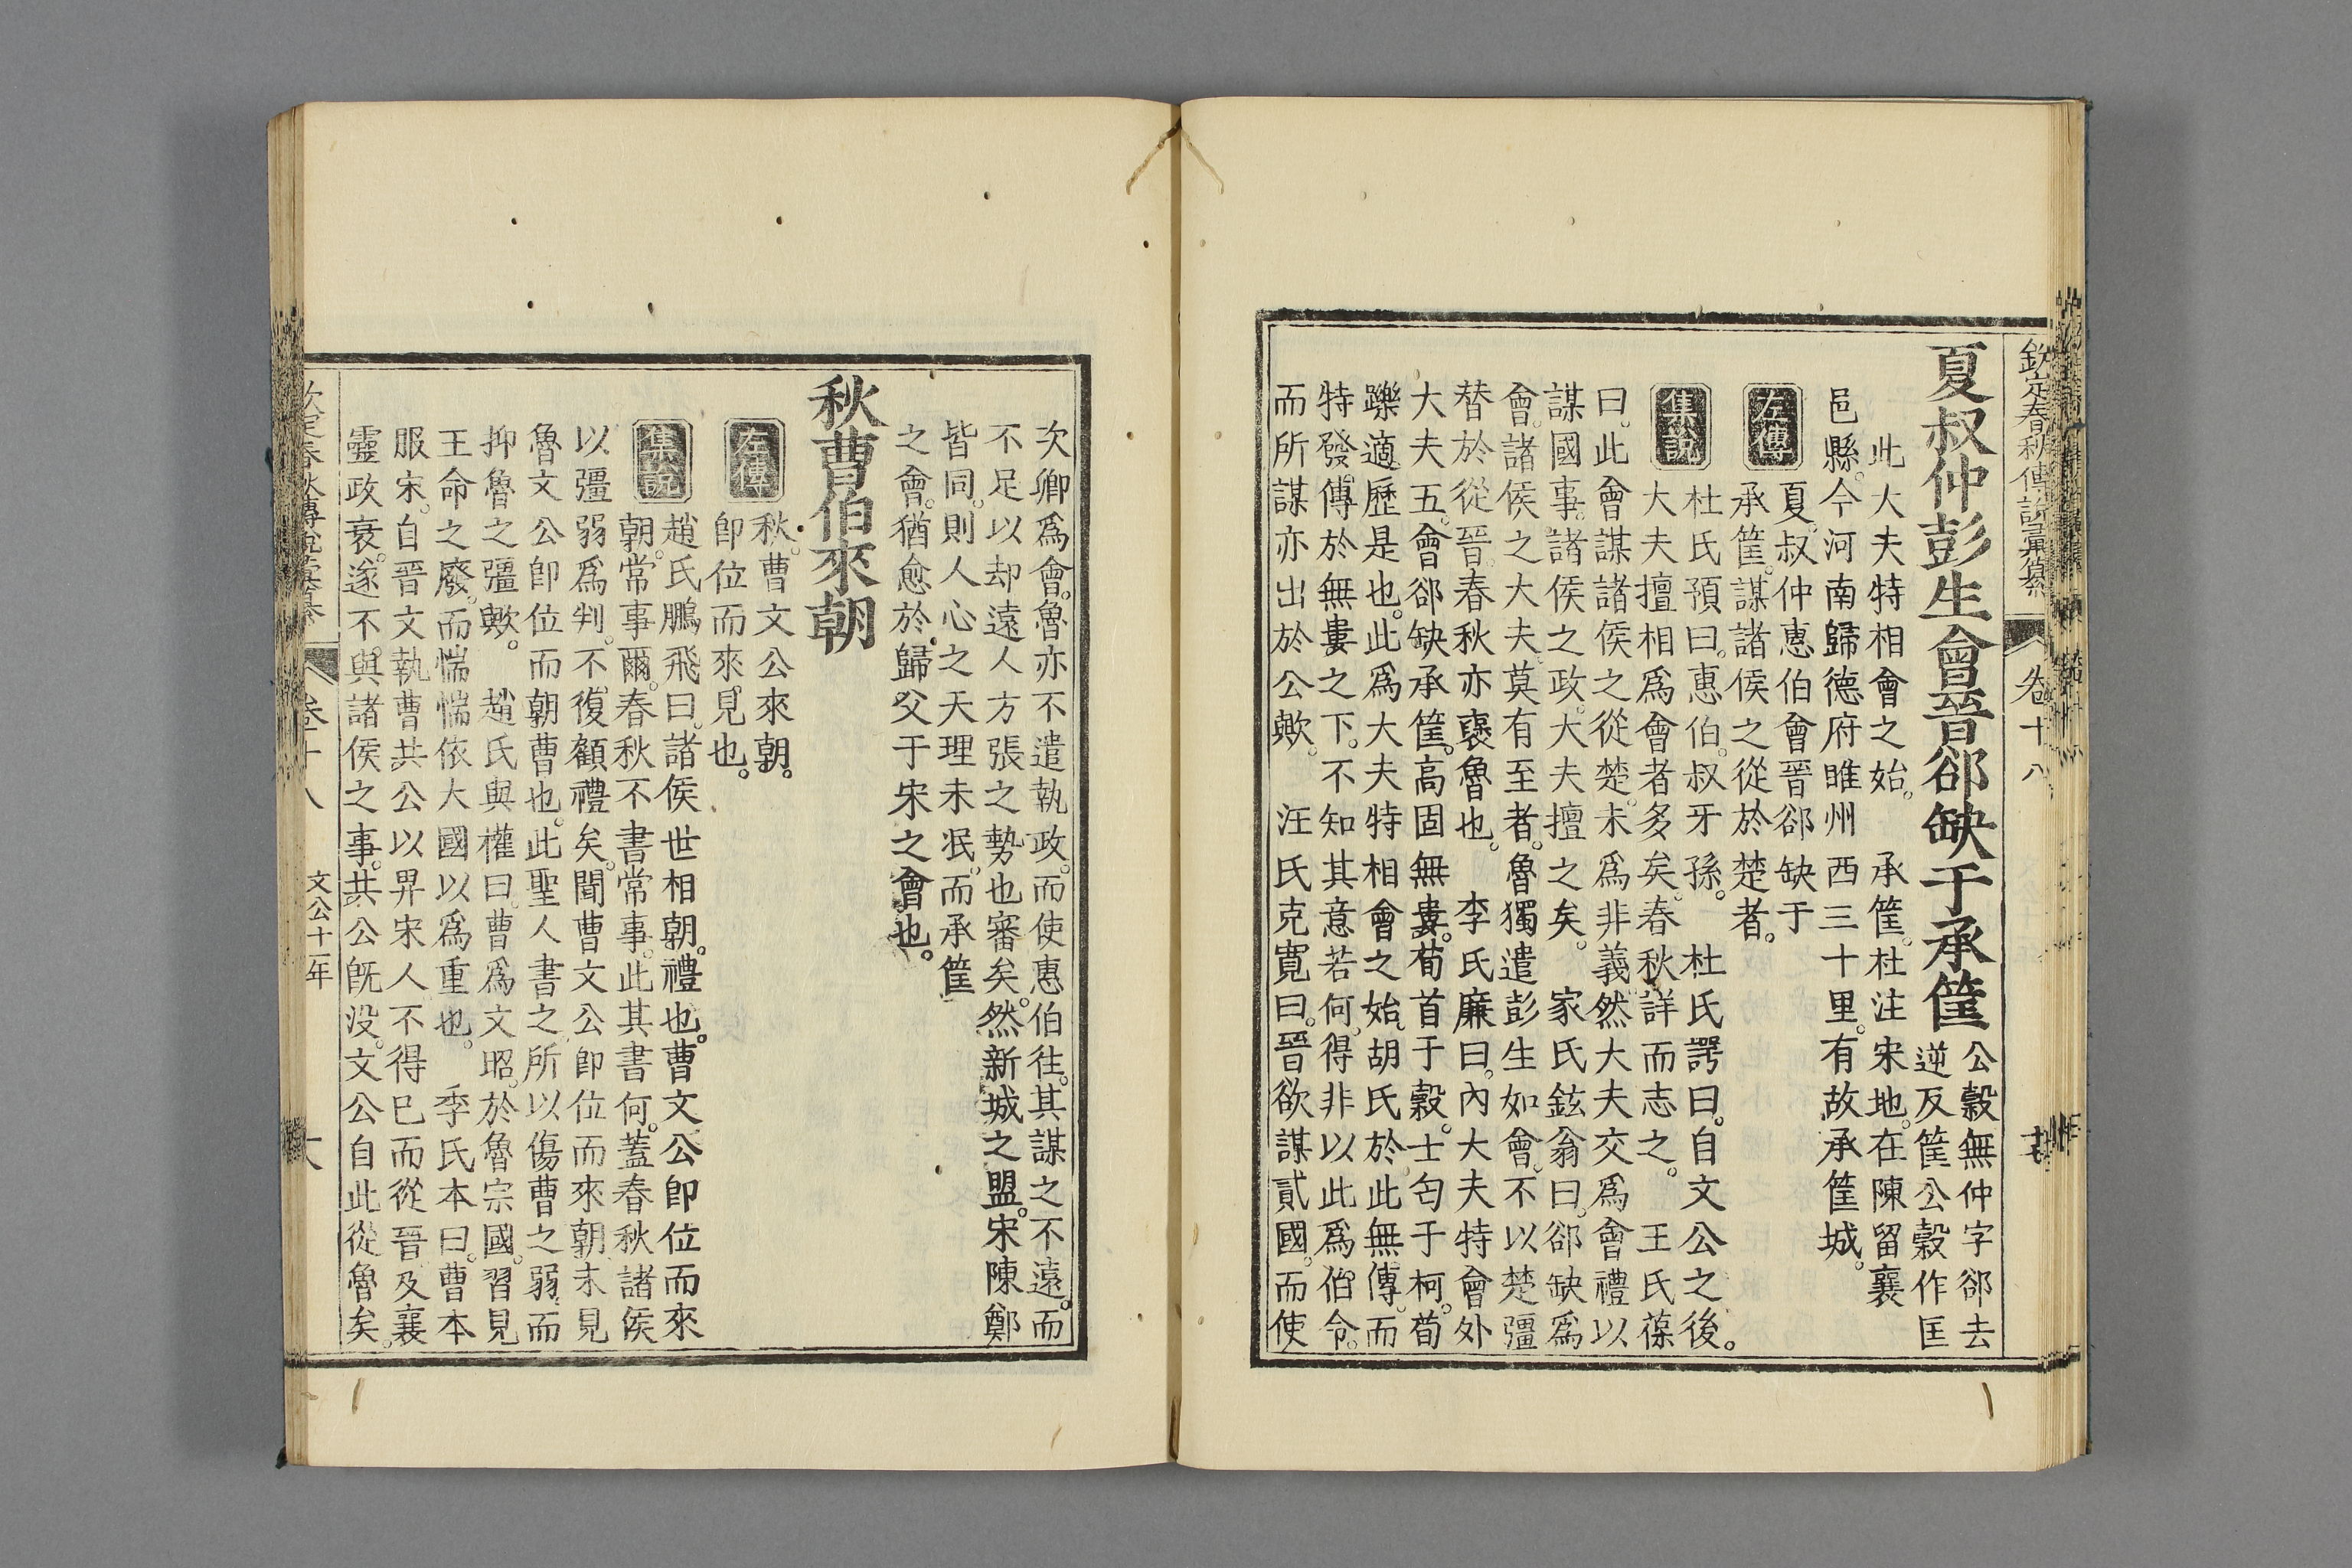 欽定春秋傳說彙纂 卷十八
夏叔仲彭生會晉郤缺于承筐
公穀無仲字郤去
逆反筐公穀作匡
此大夫特相會之始。 承筐。杜注宋地。在陳留襄
邑縣。今河南歸德府睢州西三十里。有故承筐城。
左傳
夏。叔仲惠伯會晉郤缺于
承筐。謀諸侯之從於楚者。
集說
杜氏預曰。惠伯。叔牙孫。 杜氏諤曰。自文公之後。
大夫擅相爲會者多矣。春秋詳而志之。 王氏葆
曰。此會謀諸侯之從楚。未爲非義。然大夫交爲會禮以
謀國事。諸侯之政。大夫擅之矣。 家氏鉉翁曰。郤缺爲
會。諸侯之大夫。莫有至者。魯獨遣彭生如會。不以楚彊
替於從晉。春秋亦褒魯也。 李氏廉曰。內大夫特會外
大夫五。會郤缺承筐。高固無婁。荀首于穀。士匄于柯。荀
躒適歷是也。此爲大夫特相會之始。胡氏於此無傳。而
特發傳於無婁之下。不知其意若何。得非以此爲伯令。
而所謀亦出於公歟。 汪氏克寬曰。晉欲謀貳國。而使
次卿爲會。魯亦不遣執政。而使惠伯往。其謀之不遠。而
不足以却遠人方張之勢也審矣。然新城之盟。宋陳鄭
皆同。則人心之天理未泯。而承筐
之會。猶愈於歸父于宋之會也。
秋曹伯來朝
左傳
秋。曹文公來朝。
卽位而來見也。
集說
趙氏鵬飛曰。諸侯世相朝。禮也。曹文公卽位而來
朝。常事爾。春秋不書常事。此其書何。蓋春秋諸侯
以彊弱爲判。不復顧禮矣。聞曹文公卽位而來朝。未見
魯文公卽位而朝曹也。此聖人書之。所以傷曹之弱。而
抑魯之彊歟。 趙氏與權曰。曹爲文昭。於魯宗國。習見
王命之廢。而惴惴依大國以爲重也。 季氏本曰。曹本
服宋。自晉文執曹共公以畀宋人。不得已而從晉。及襄
靈政衰。遂不與諸侯之事。共公旣沒。文公自此從魯矣。
卷十八 文公十一年